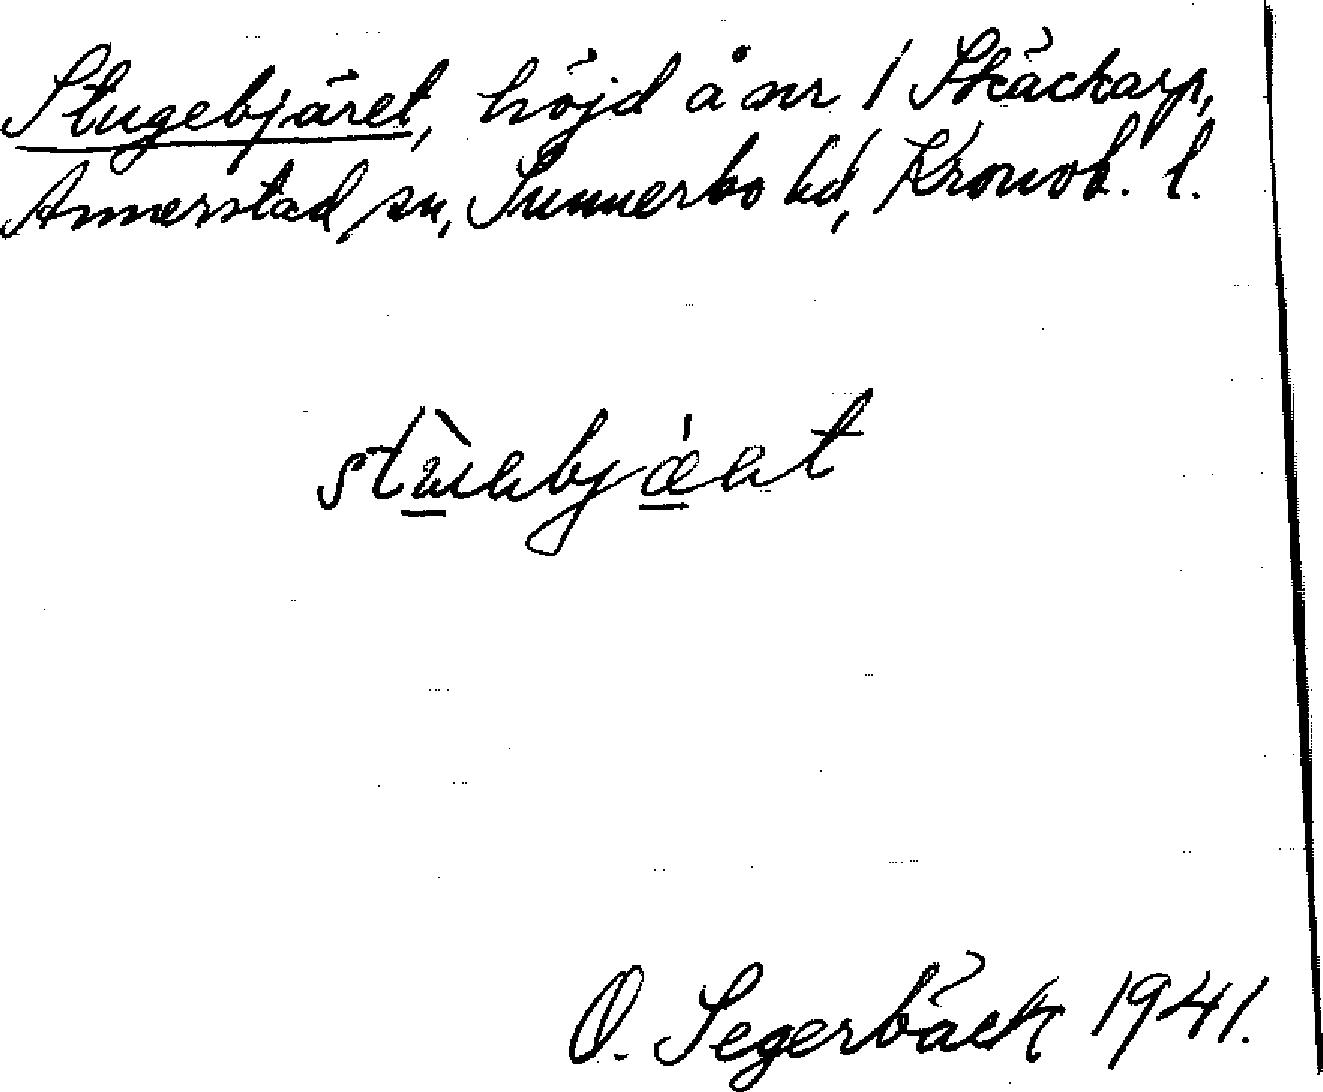 Stugebjäret, höjd å nr 1 Skäckarp,
Annerstad sn, Sunnerbo hd, Kronob. l.
O. Segerbäck 1941.